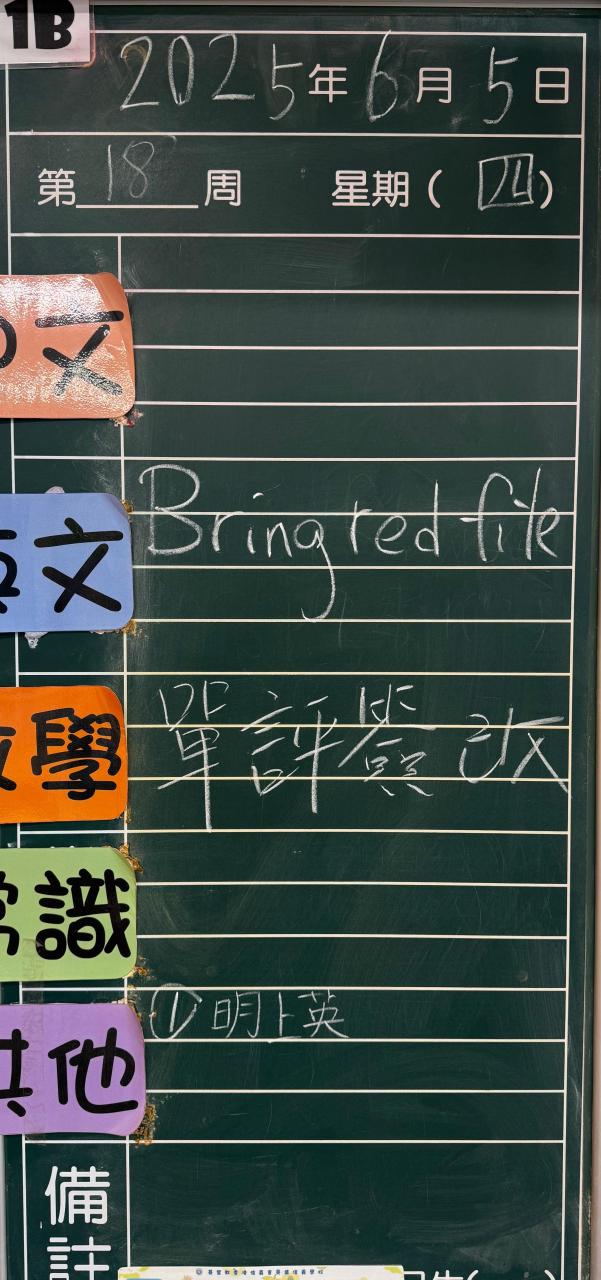 1B
2025年6月5日
第18周 星期(四)
文
Bring red file
英文
單評簽 改
數學
常識
① 明上英
其他
備註